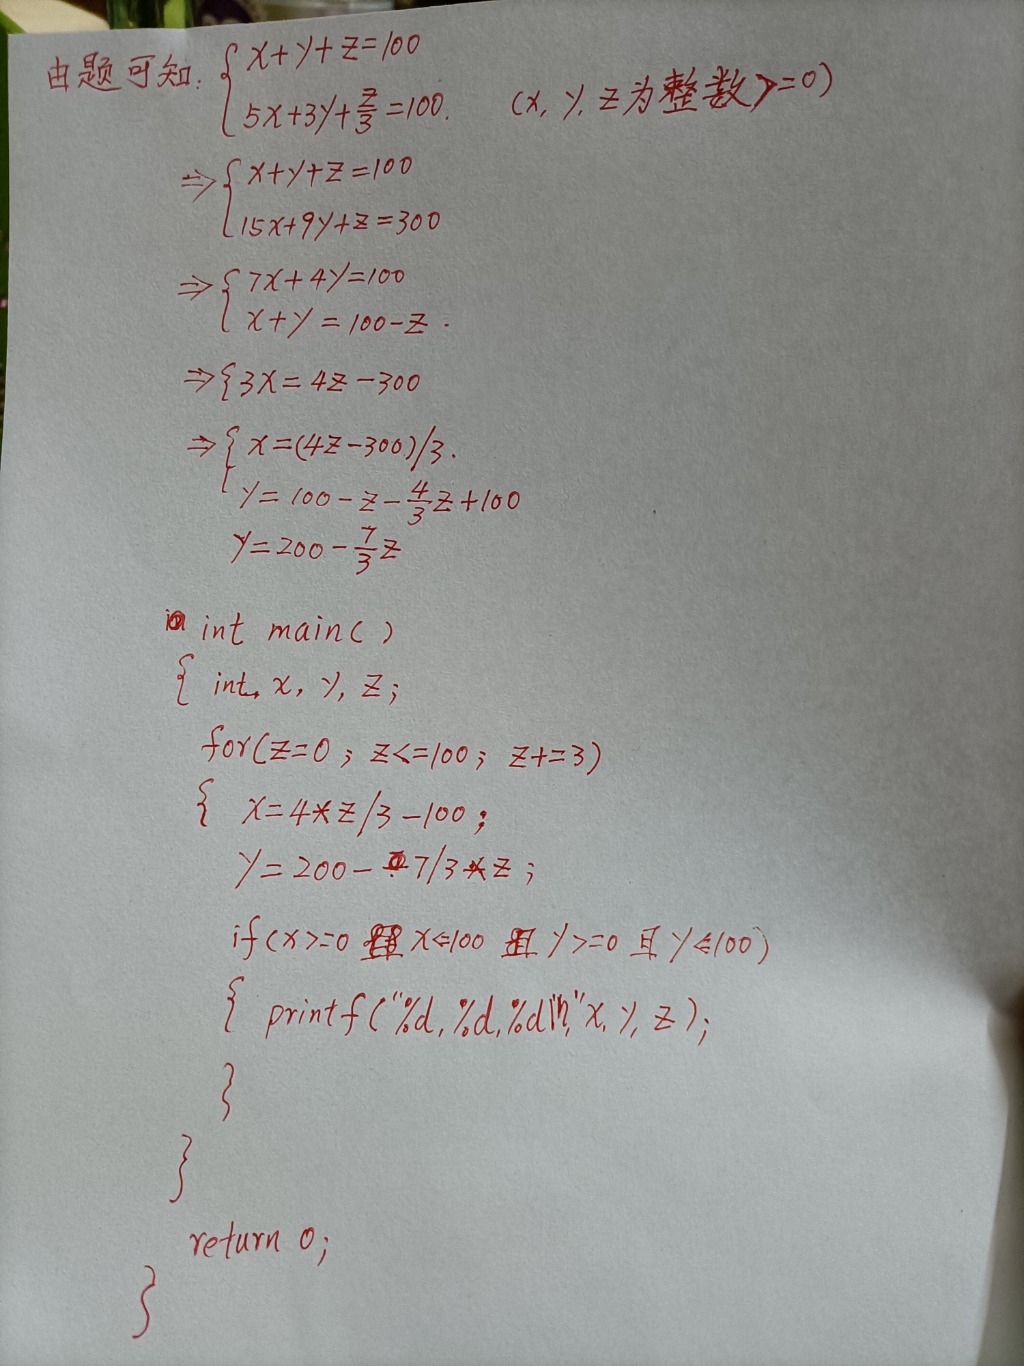 由题可知: { x+y+z=100
5x+3y+z/3=100. (x, y, z为整数>=0)
⇒ { x+y+z=100
15x+9y+z=300
⇒ { 7x+4y=100
x+y=100-z.
⇒ { 3x=4z-300
⇒ { x=(4z-300)/3.
y=100-z-4/3z+100
y=200-7/3z
int main()
{ int x, y, z;
for(z=0; z<=100; z+=3)
{ x=4*z/3-100;
y=200-7/3*z;
if(x>=0 且 x<=100 且 y>=0 且 y<=100)
{ printf("%d,%d,%d\n",x,y,z);
}
}
return 0;
}